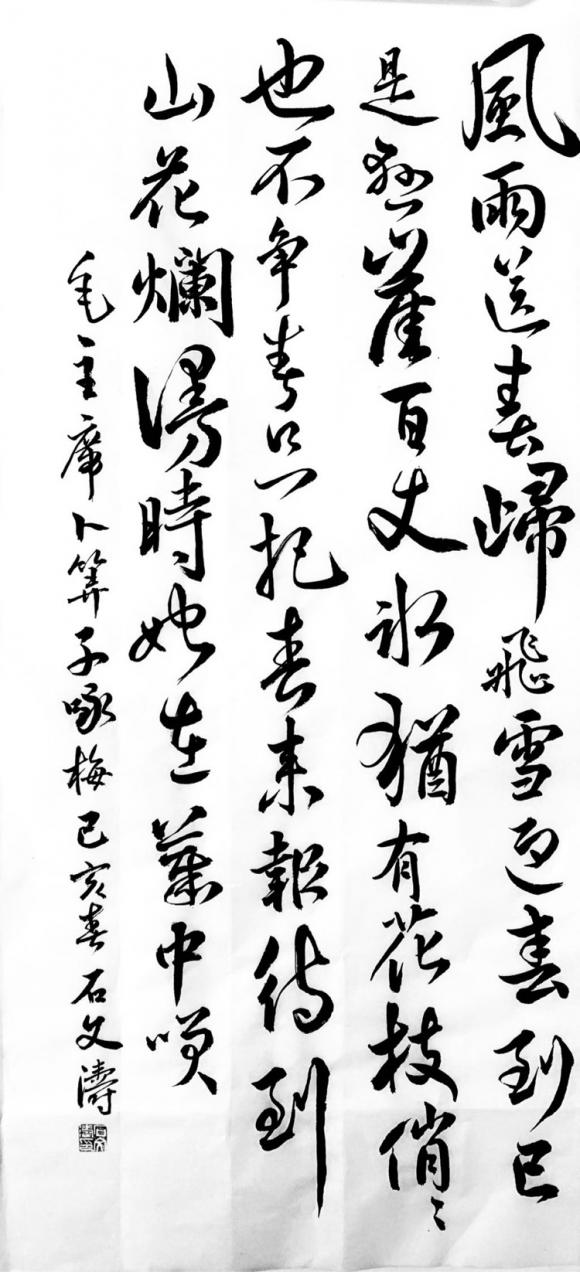 風雨送春歸飛雪迎春到已
是懸崖百丈冰猶有花枝俏〻
也不争春只把春来報待到
山花爛漫時她在叢中咲
毛主席卜算子咏梅己亥春石文濤